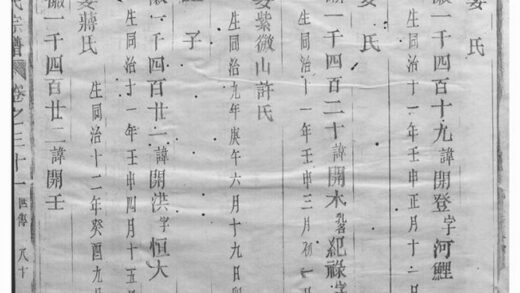 妻 氏
一千四百十九諱開登字河鯉
生同治十一年壬申正月十二
妻 氏
一千四百二十諱開木名紀祿字
生同治十一年壬申三月初一
妻紫微山許氏
生同治九年庚午六月十九日
子
一千四百廿一諱開洪字恒大
生同治十一年壬申四月十五
妻蔣氏
生同治十二年癸酉九
一千四百廿二諱開王
氏宗譜 卷之三十一 世傳 尺十